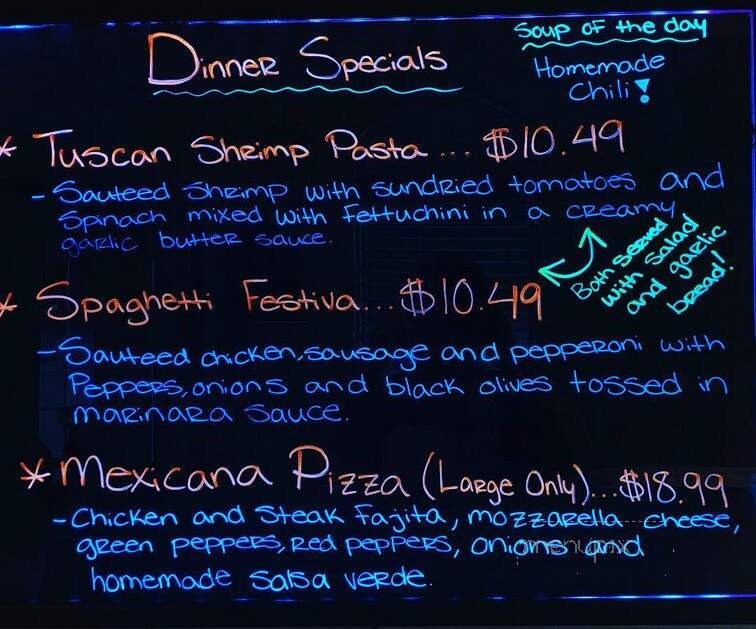 Dinner Specials
Soup of the day
Homemade
Chili!
* Tuscan Shrimp Pasta ... $10.49
- Sauteed Shrimp with sundried tomatoes and
Spinach mixed with Fettuchini in a creamy
garlic butter sauce.
Both served
with salad
and garlic
bread!
* Spaghetti Festiva... $10.49
- Sauteed chicken, sausage and pepperoni with
Peppers, onions and black olives tossed in
marinara sauce.
* Mexicana Pizza (Large Only)... $18.99
- Chicken and Steak Fajita, mozzarella cheese,
green peppers, Red peppers, onions and
homemade salsa verde.
menupix